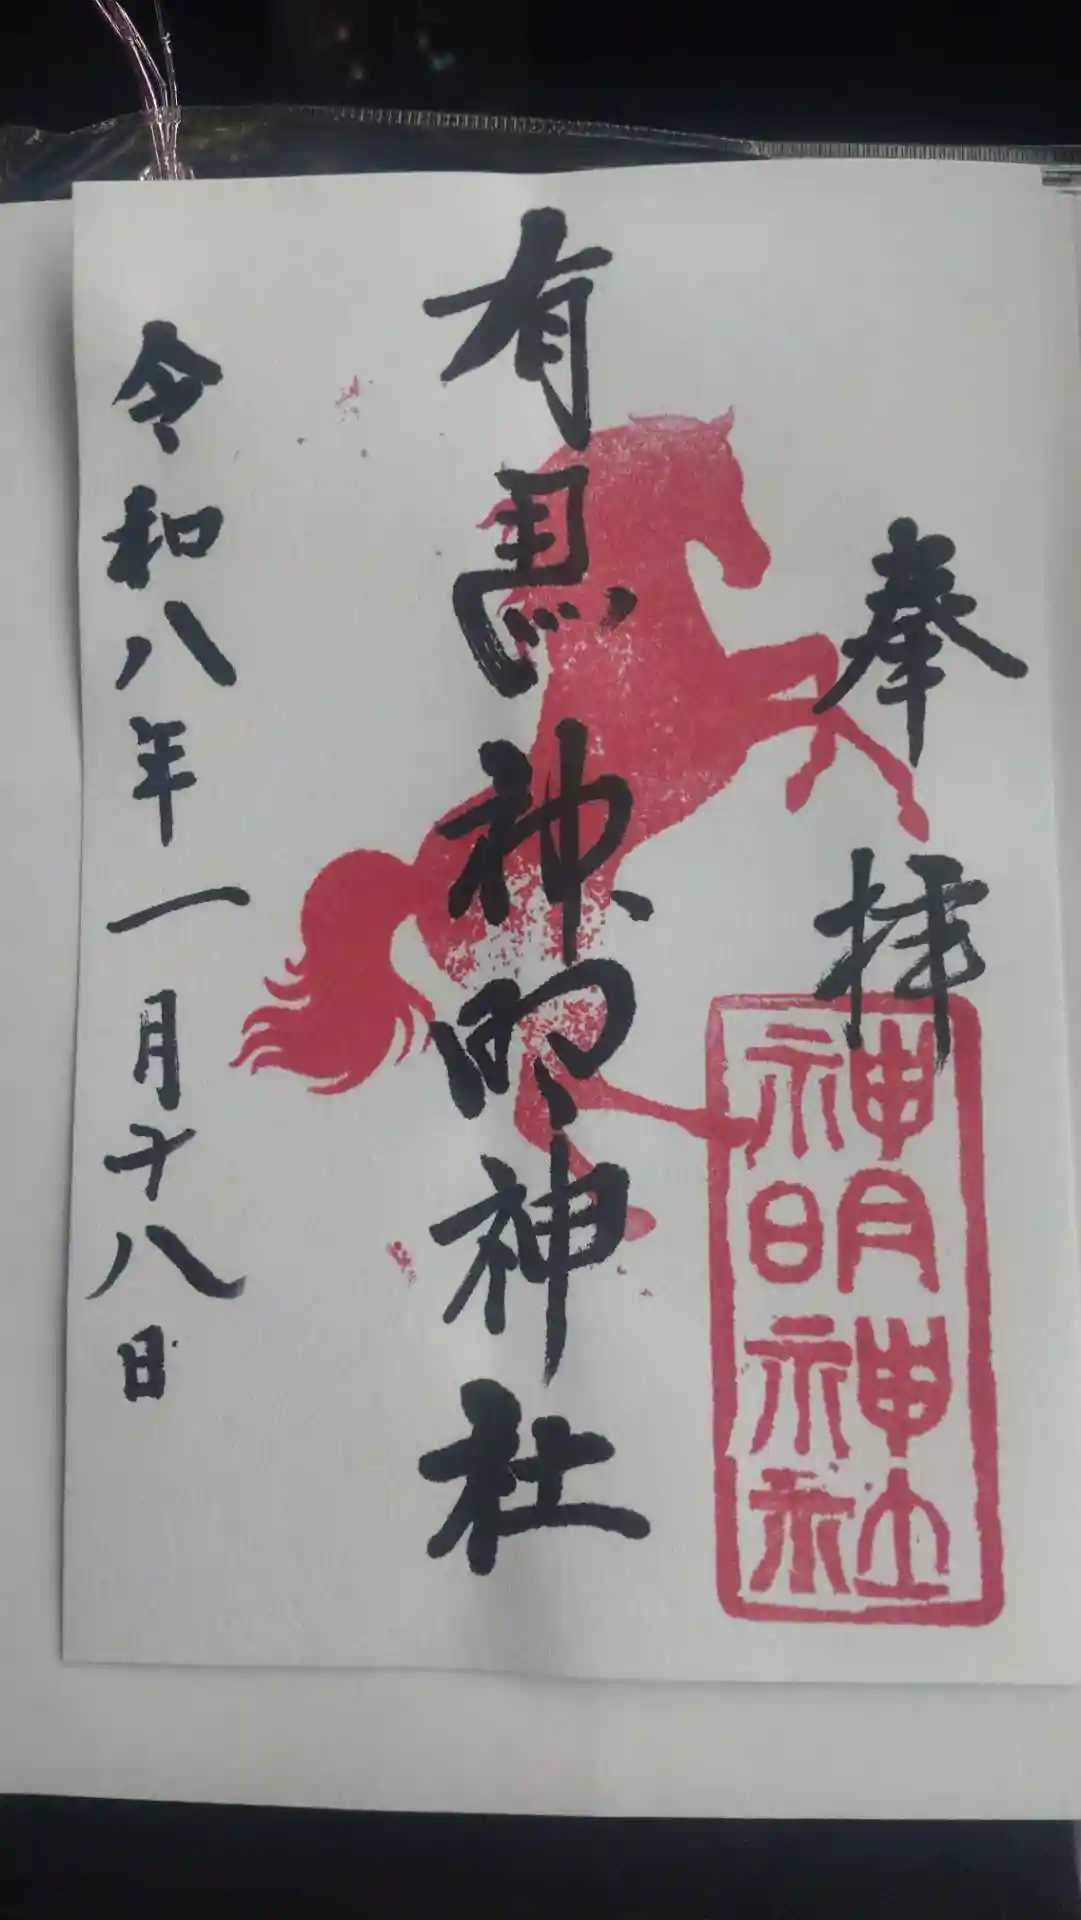 奉拝
神明神社
神明神社
有馬神明神社
令和八年一月十八日